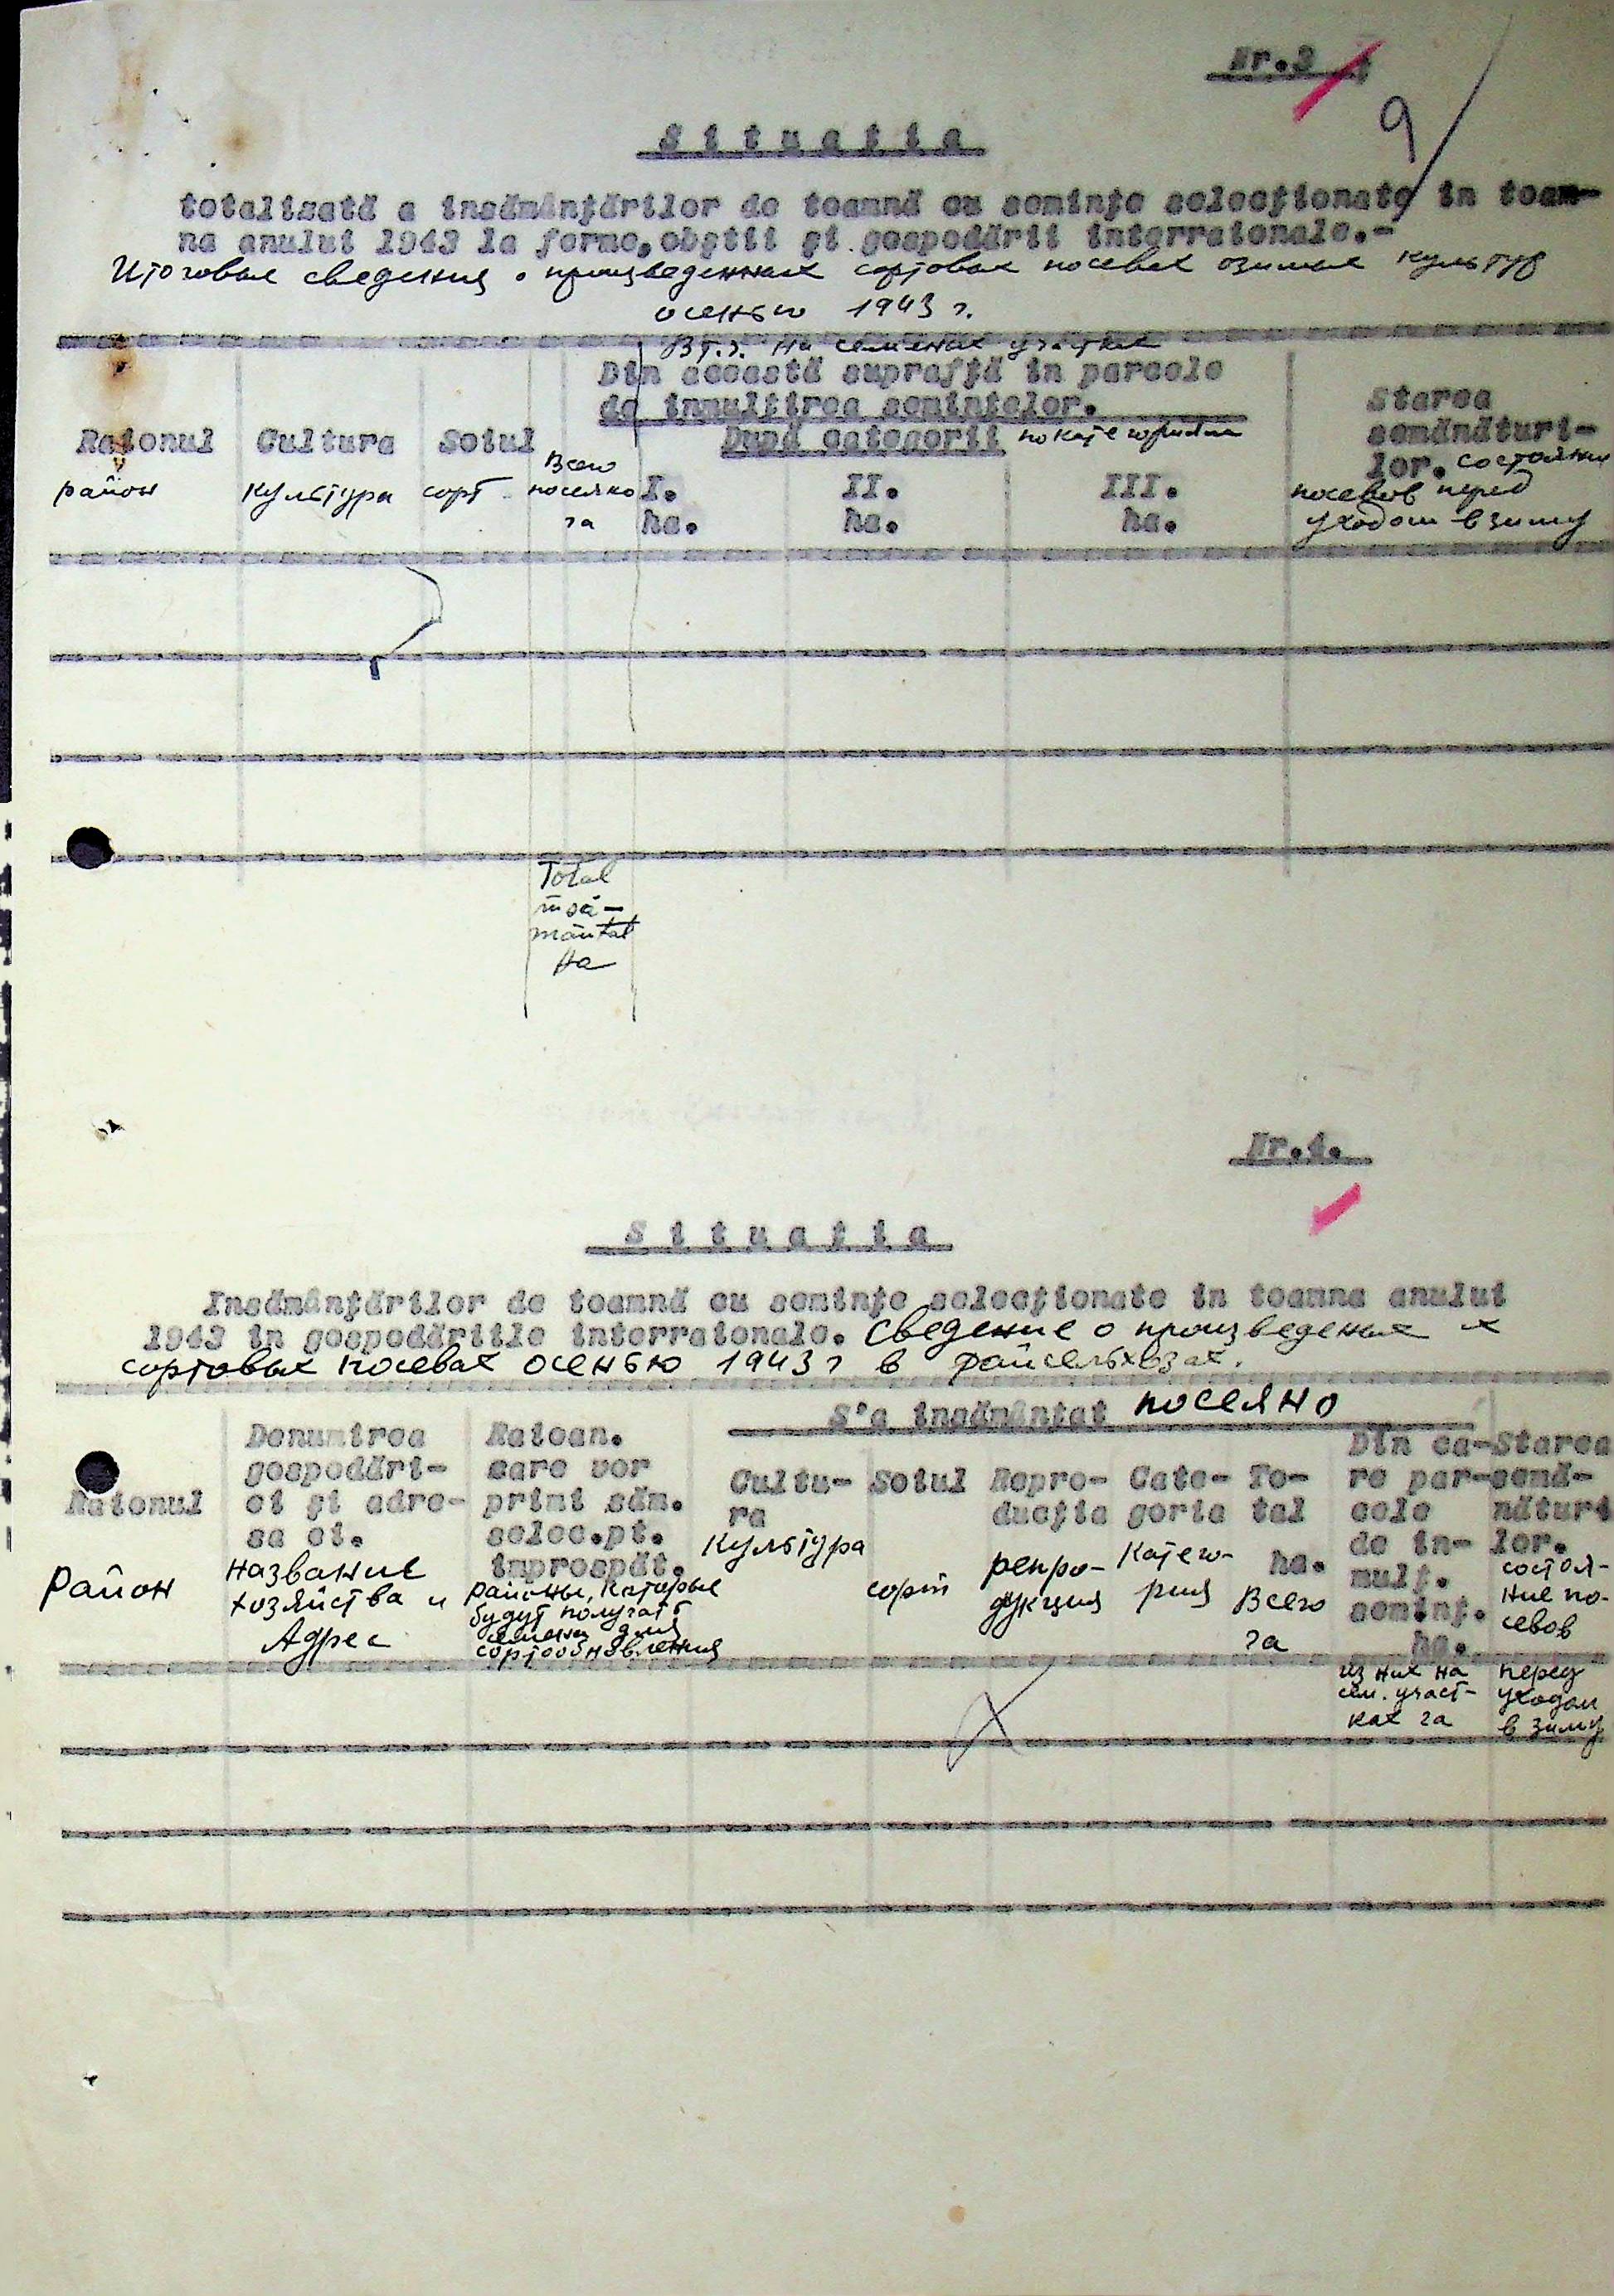 Nr.3
9
Situaţia
totalizată a insămânţărilor de toamnă cu seminţe selecţionate in toam-
na anului 1943 la ferme, obştii şi gospodării interraionale.-
Итоговые сведения о произведенных сортовых посевах озимых культур
осенью 1943 г.
В т.ч. на семеных участках
Din această suprafţă in parcele
de inmulţirea seminţelor.
După categorii по категориям
Raionul Cultura Soiul
Starea
semănături-
lor. состояние
посевов перед
уходом в зиму
район культура сорт
Всего
посеяно
га
I. II. III.
ha. ha. ha.
Total
însă-
mânţat
Ha
Nr.4.
Situaţia
Insămânţărilor de toamnă cu seminţe selecţionate in toamna anului
1943 in gospodăriile interraionale. Сведение о произведенных
сортовых посевах осенью 1943 г в райсельхозах.
S'a insămânţat посеяно
Raionul
Район
Denumirea
gospodări-
ei şi adre-
sa ei.
Название
хозяйства и
Адрес
Raioan.
care vor
primi săm.
selec.pt.
improspăt.
районы, которые
будут получать
семена для
сортообновления
Cultu-
ra
Культура
Soiul
сорт
Repro-
ducţia
репро-
дукция
Cate-
goria
Катего-
рия
To-
tal
ha.
Всего
га
Din ca-
re par-
cele
de in-
mulţ.
seminţ.
ha.
из них на
сем. участ-
ках га
Starea
semă-
nături
lor.
состоя-
ние по-
севов
перед
уходом
в зиму